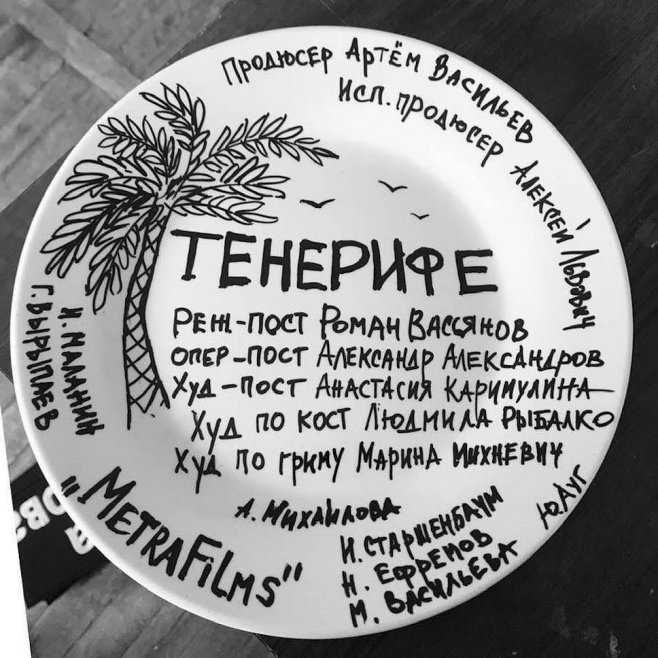 Продюсер Артём Васильев
Исп. продюсер Алексей Львович
ТЕНЕРИФЕ
Реж-пост Роман Васьянов
опер-пост Александр Александров
Худ-пост Анастасия Каримулина
Худ по кост Людмила Рыбалко
Худ по гриму Марина Михневич
И. Маланин
Г. Вырыпаев
"MetraFilms"
А. Михайлова
И. Старшенбаум
Н. Ефремов
М. Васильева
Ю. Ауг